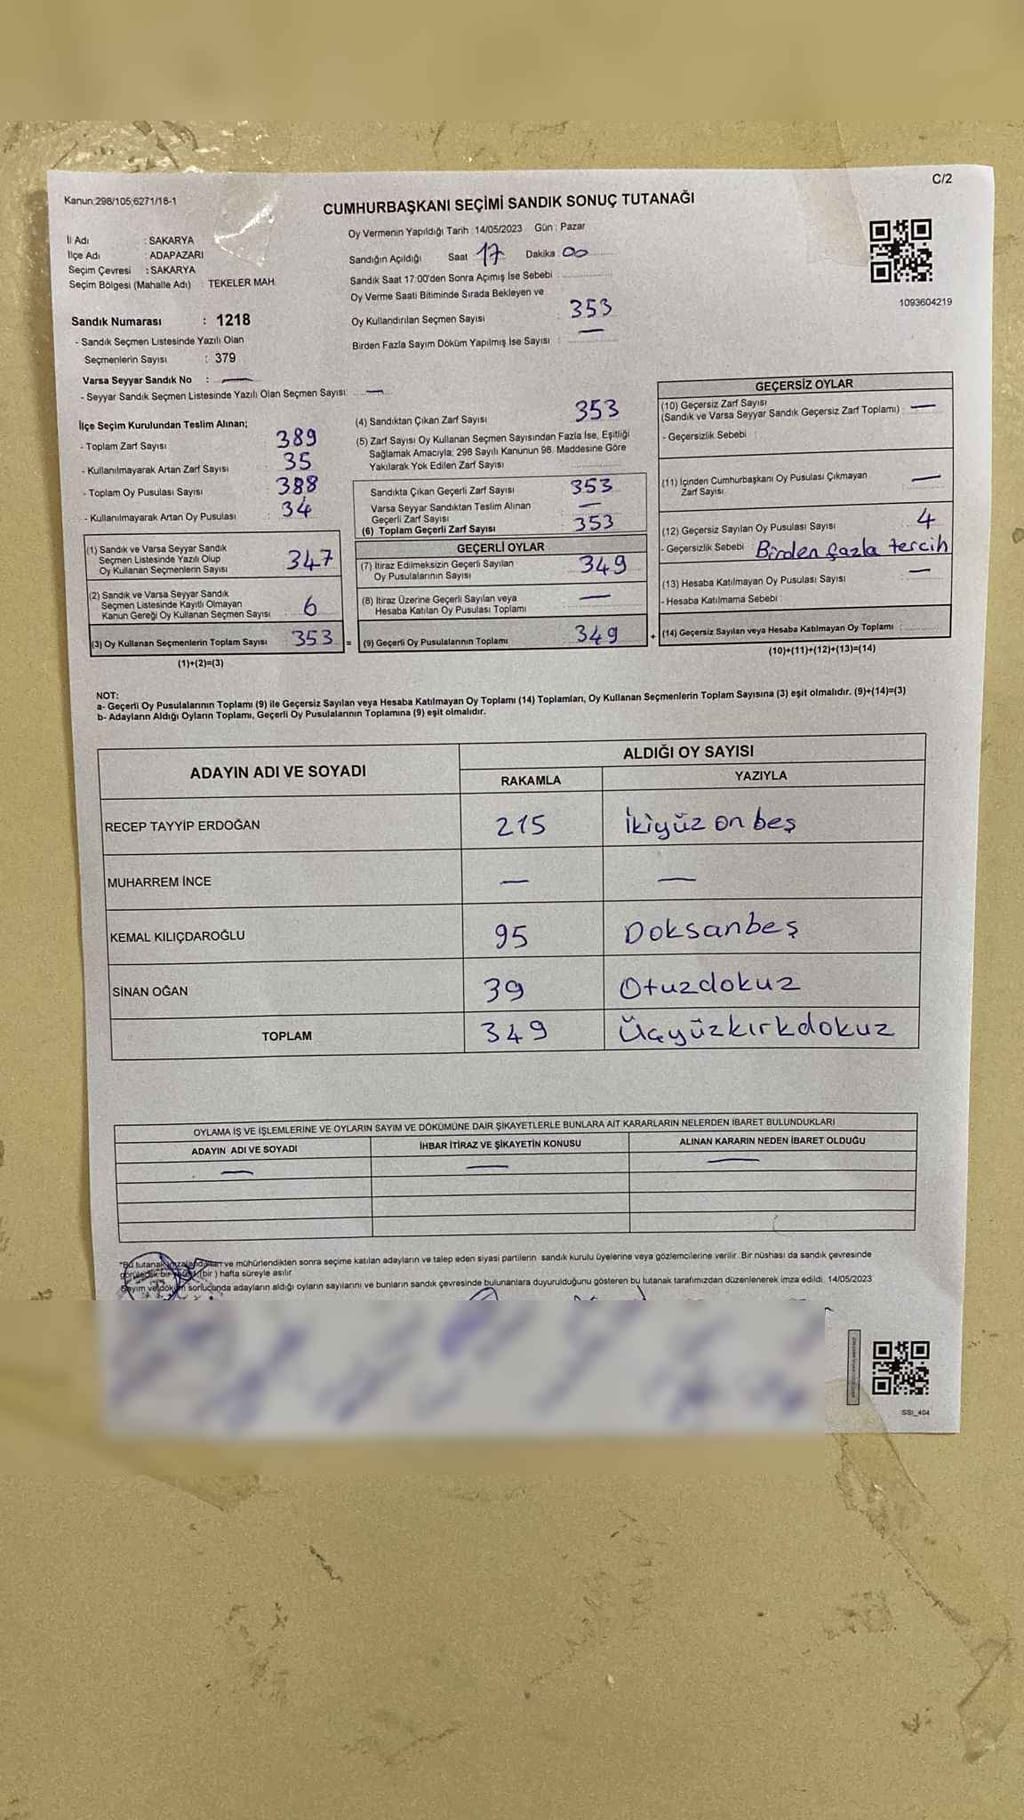 C/2
Kanun:298/105;6271/18-1
CUMHURBAŞKANI SEÇİMİ SANDIK SONUÇ TUTANAĞI
İl Adı : SAKARYA
İlçe Adı : ADAPAZARI
Seçim Çevresi : SAKARYA
Seçim Bölgesi (Mahalle Adı) TEKELER MAH.
Oy Vermenin Yapıldığı Tarih : 14/05/2023 Gün : Pazar
Sandığın Açıldığı Saat 17 Dakika 00
Sandık Saat 17:00'den Sonra Açımış İse Sebebi
Oy Verme Saati Bitiminde Sırada Bekleyen ve
Oy Kullandırılan Seçmen Sayısı 353
Birden Fazla Sayım Döküm Yapılmış İse Sayısı —
1093604219
Sandık Numarası : 1218
- Sandık Seçmen Listesinde Yazılı Olan
Seçmenlerin Sayısı : 379
Varsa Seyyar Sandık No : —
- Seyyar Sandık Seçmen Listesinde Yazılı Olan Seçmen Sayısı: —
İlçe Seçim Kurulundan Teslim Alınan;
- Toplam Zarf Sayısı 389
- Kullanılmayarak Artan Zarf Sayısı 35
- Toplam Oy Pusulası Sayısı 388
- Kullanılmayarak Artan Oy Pusulası 34
(1) Sandık ve Varsa Seyyar Sandık
Seçmen Listesinde Yazılı Olup
Oy Kullanan Seçmenlerin Sayısı 347
(2) Sandık ve Varsa Seyyar Sandık
Seçmen Listesinde Kayıtlı Olmayan
Kanun Gereği Oy Kullanan Seçmen Sayısı 6
(3) Oy Kullanan Seçmenlerin Toplam Sayısı 353 =
(1)+(2)=(3)
(4) Sandıktan Çıkan Zarf Sayısı 353
(5) Zarf Sayısı Oy Kullanan Seçmen Sayısından Fazla İse, Eşitliği
Sağlamak Amacıyla; 298 Sayılı Kanunun 98. Maddesine Göre
Yakılarak Yok Edilen Zarf Sayısı
Sandıkta Çıkan Geçerli Zarf Sayısı 353
Varsa Seyyar Sandıktan Teslim Alınan
Geçerli Zarf Sayısı —
(6) Toplam Geçerli Zarf Sayısı 353
GEÇERLİ OYLAR
(7) İtiraz Edilmeksizin Geçerli Sayılan
Oy Pusulalarının Sayısı 349
(8) İtiraz Üzerine Geçerli Sayılan veya
Hesaba Katılan Oy Pusulası Toplamı —
(9) Geçerli Oy Pusulalarının Toplamı 349 +
GEÇERSİZ OYLAR
(10) Geçersiz Zarf Sayısı
(Sandık ve Varsa Seyyar Sandık Geçersiz Zarf Toplamı) —
- Geçersizlik Sebebi
(11) İçinden Cumhurbaşkanı Oy Pusulası Çıkmayan
Zarf Sayısı —
(12) Geçersiz Sayılan Oy Pusulası Sayısı 4
- Geçersizlik Sebebi Birden fazla tercih
(13) Hesaba Katılmayan Oy Pusulası Sayısı —
- Hesaba Katılmama Sebebi
(14) Geçersiz Sayılan veya Hesaba Katılmayan Oy Toplamı
(10)+(11)+(12)+(13)=(14)
NOT:
a- Geçerli Oy Pusulalarının Toplamı (9) ile Geçersiz Sayılan veya Hesaba Katılmayan Oy Toplamı (14) Toplamları, Oy Kullanan Seçmenlerin Toplam Sayısına (3) eşit olmalıdır. (9)+(14)=(3)
b- Adayların Aldığı Oyların Toplamı, Geçerli Oy Pusulalarının Toplamına (9) eşit olmalıdır.
ADAYIN ADI VE SOYADI ALDIĞI OY SAYISI
RAKAMLA YAZIYLA
RECEP TAYYİP ERDOĞAN 215 İkiyüz on beş
MUHARREM İNCE — —
KEMAL KILIÇDAROĞLU 95 Doksanbeş
SİNAN OĞAN 39 Otuzdokuz
TOPLAM 349 Üçyüzkırkdokuz
OYLAMA İŞ VE İŞLEMLERİNE VE OYLARIN SAYIM VE DÖKÜMÜNE DAİR ŞİKAYETLERLE BUNLARA AİT KARARLARIN NELERDEN İBARET BULUNDUKLARI
ADAYIN ADI VE SOYADI İHBAR İTİRAZ VE ŞİKAYETİN KONUSU ALINAN KARARIN NEDEN İBARET OLDUĞU
— — —
ve mühürlendikten sonra seçime katılan adayların ve talep eden siyasi partilerin sandık kurulu üyelerine veya gözlemcilerine verilir. Bir nüshası da sandık çevresinde
(bir) hafta süreyle asılır.
sonucunda adayların aldığı oyların sayılarını ve bunların sandık çevresinde bulunanlara duyurulduğunu gösteren bu tutanak tarafımızdan düzenlenerek imza edildi. 14/05/2023
SSI_404